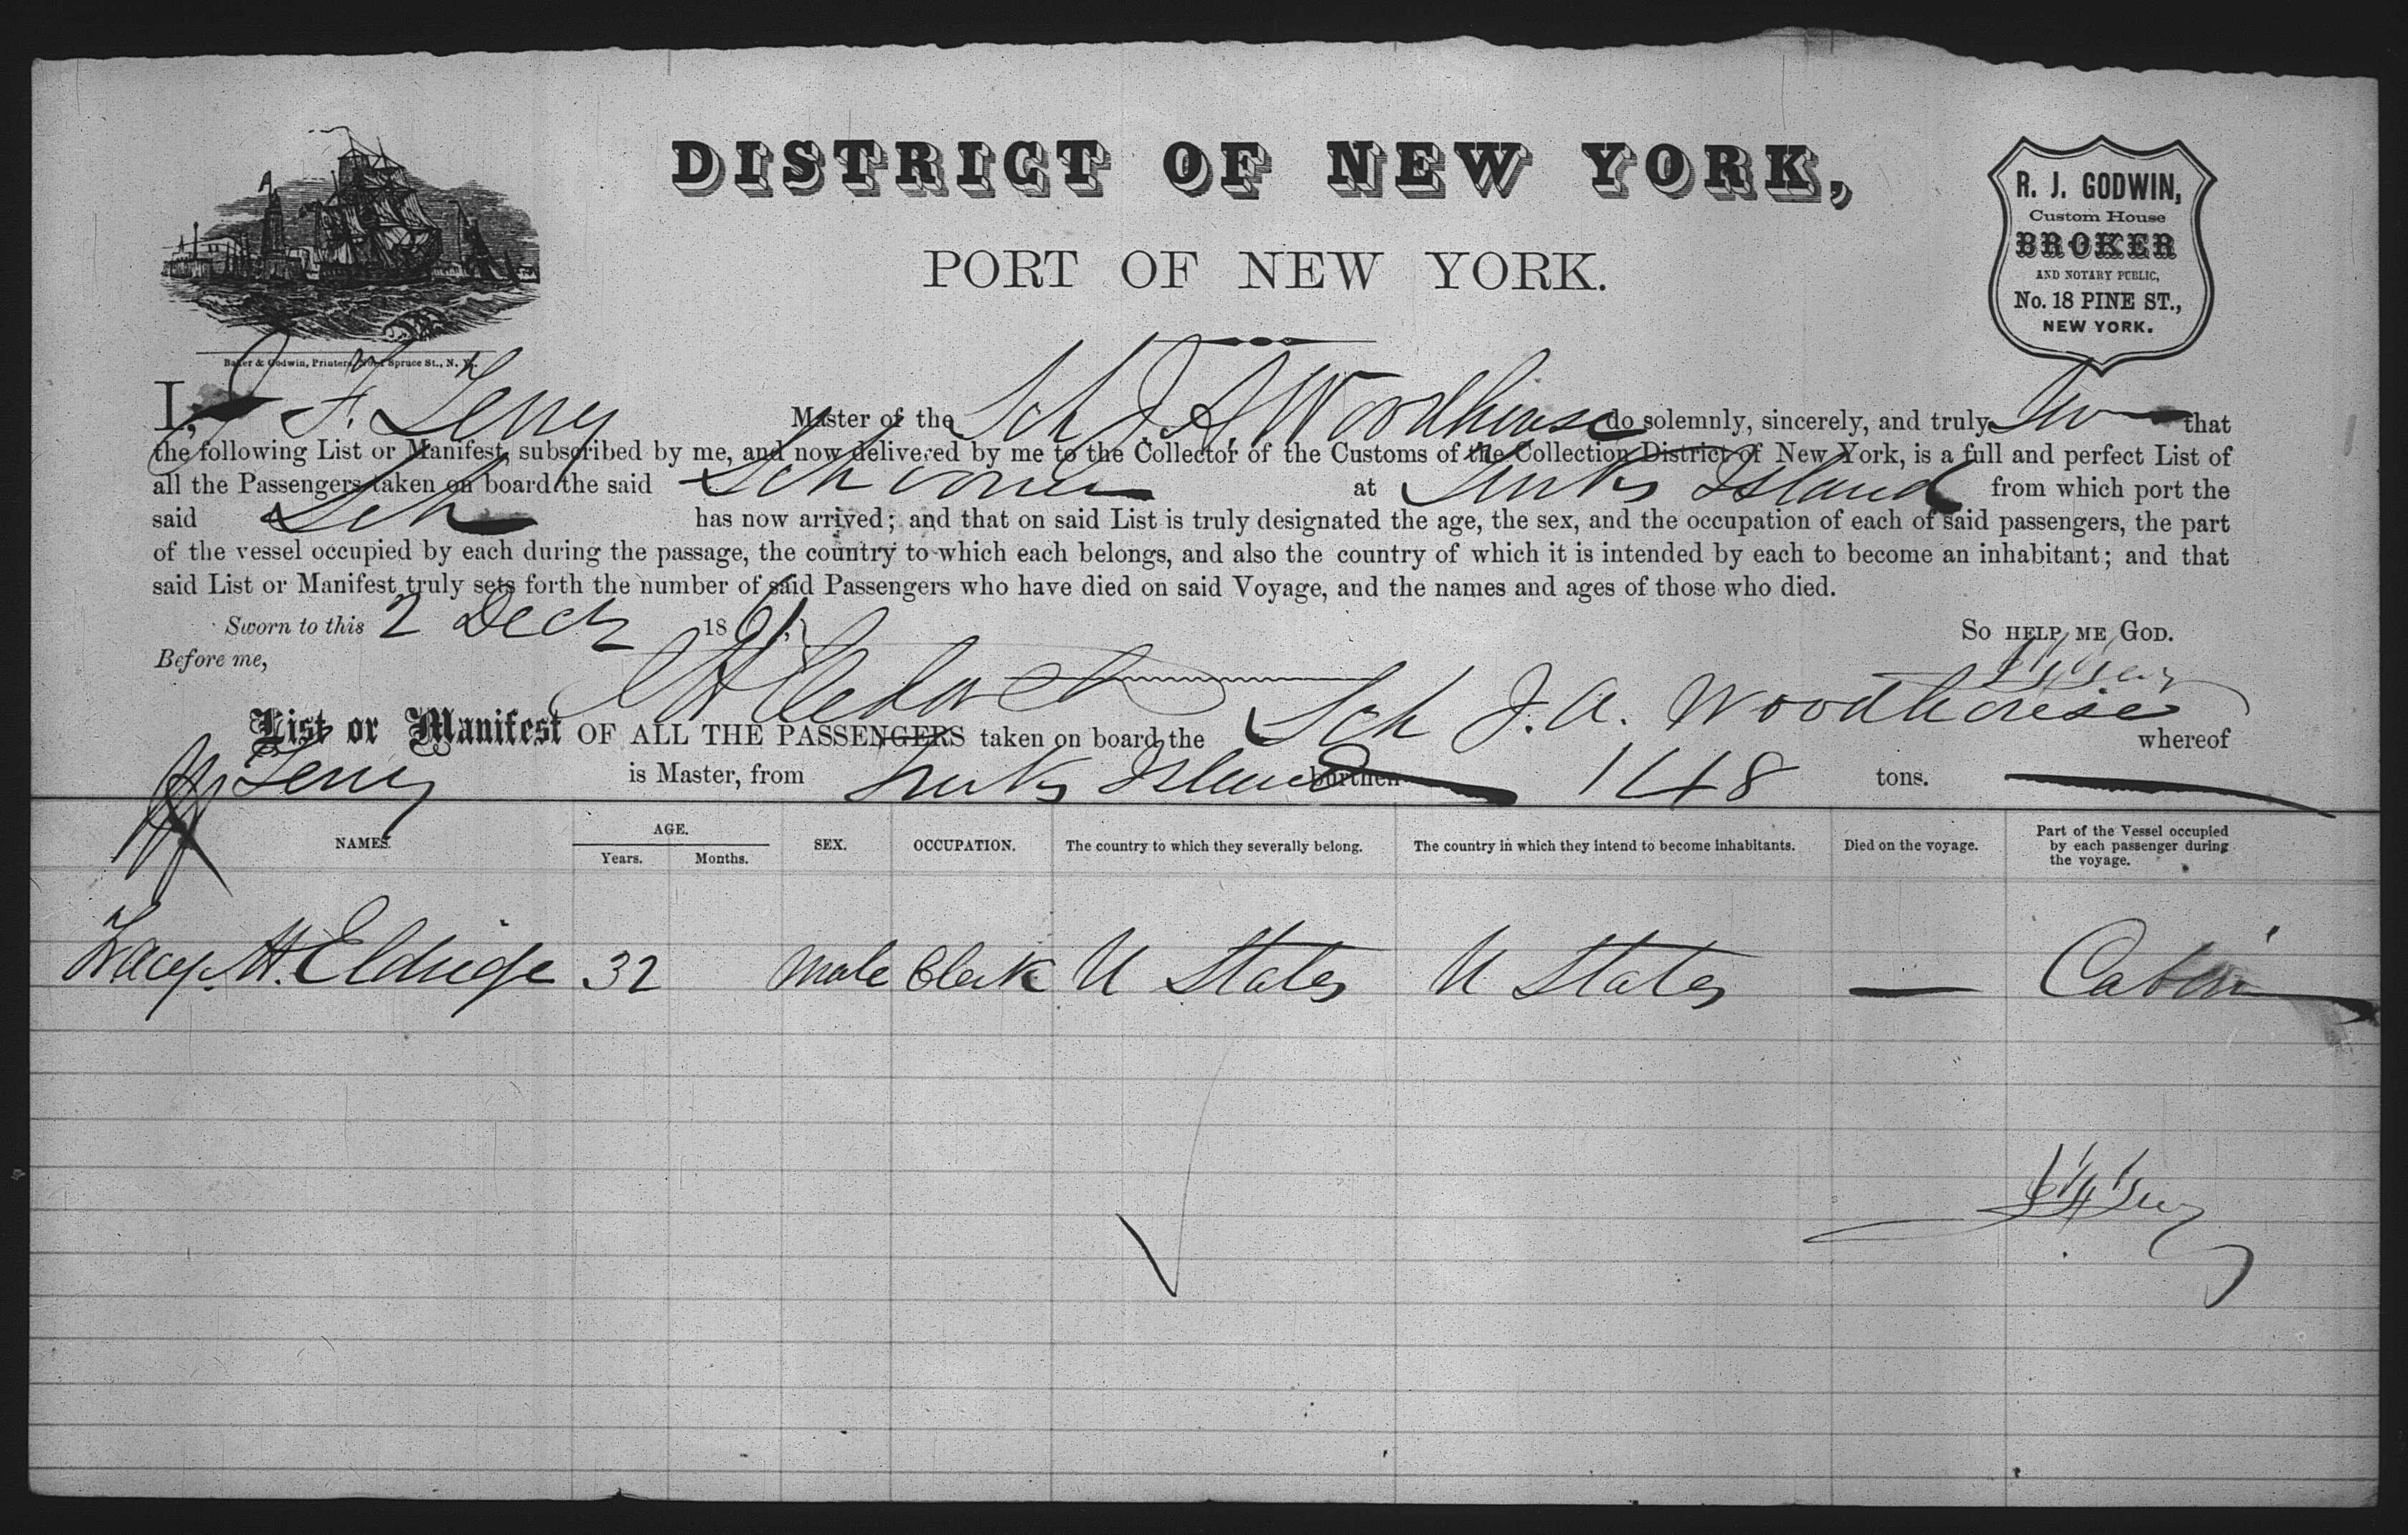 DISTRICT OF NEW YORK,
PORT OF NEW YORK.
R. J. GODWIN,
Custom House
BROKER
AND NOTARY PUBLIC,
No. 18 PINE ST.,
NEW YORK.
Baker & Godwin, Printers, No. 1 Spruce St., N. Y.
I, F. Terry Master of the Sch J. A. Woodhouse do solemnly, sincerely, and truly that
the following List or Manifest, subscribed by me, and now delivered by me to the Collector of the Customs of the Collection District of New York, is a full and perfect List of
all the Passengers taken on board the said Schooner at Turks Island from which port the
said Sch has now arrived; and that on said List is truly designated the age, the sex, and the occupation of each of said passengers, the part
of the vessel occupied by each during the passage, the country to which each belongs, and also the country of which it is intended by each to become an inhabitant; and that
said List or Manifest truly sets forth the number of said Passengers who have died on said Voyage, and the names and ages of those who died.
Sworn to this 2 Decr 1861, So HELP ME GOD.
Before me,
List or Manifest OF ALL THE PASSENGERS taken on board the Sch J. A. Woodhouse whereof
Terry is Master, from Turks Island burthen 148 tons.
NAMES. AGE. Years. Months. SEX. OCCUPATION. The country to which they severally belong. The country in which they intend to become inhabitants. Died on the voyage. Part of the Vessel occupied by each passenger during the voyage.
H. Eldridge 32 Male Clerk U States U States — Cabin